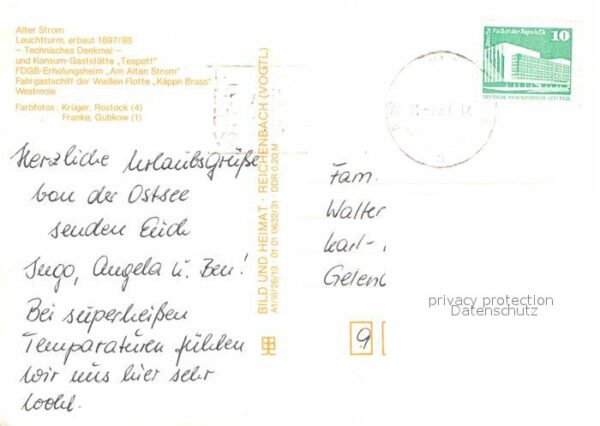 Alter Strom
Leuchtturm, erbaut 1897/98
– Technisches Denkmal –
und Konsum-Gaststätte „Teepott"
FDGB-Erholungsheim „Am Alten Strom"
Fahrgastschiff der Weißen Flotte „Käppn Brass"
Westmole
Farbfotos: Krüger, Rostock (4)
Franke, Gubkow (1)
Herzliche Urlaubsgrüße
von der Ostsee
senden Euch
Ingo, Angela u. Ben!
Bei superheißen
Temperaturen fühlen
wir uns hier sehr
wohl.
BILD UND HEIMAT · REICHENBACH (VOGTL)
A1/III/26/13 · 01 01 0632/31 · DDR 0,20 M
Palast der Republik
10
Fam.
Walter
Karl-
privacy protection
Datenschutz
9